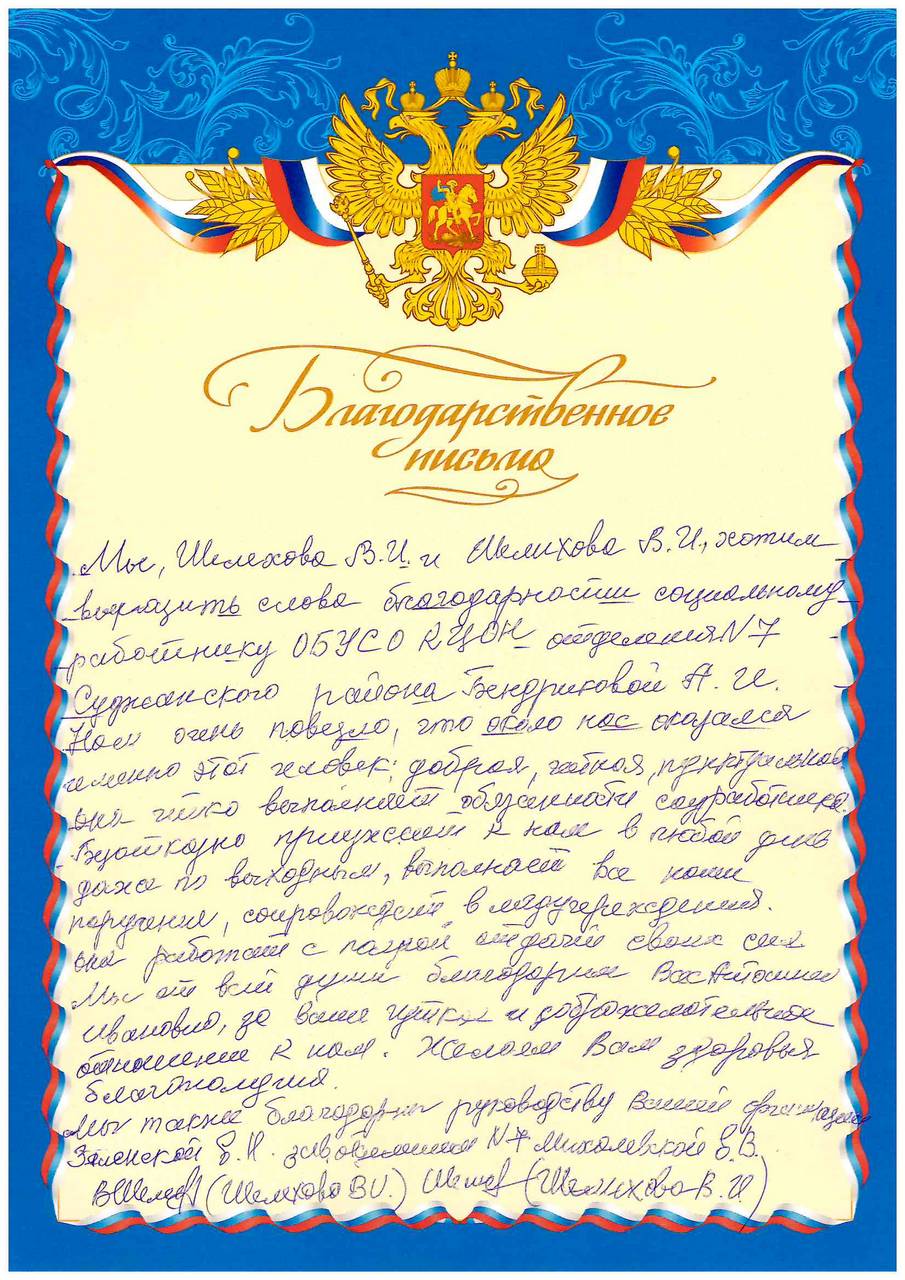 Благодарственное
письмо
Мы, Шелехова В.И. и Шелихова В.И., хотим
выразить слова благодарности социальному
работнику ОБУСО КЦСОН отделения N7
Суджанского района Бендриковой А. И.
Нам очень повезло, что около нас оказался
именно этот человек: добрая, чуткая, пунктуальная
она чётко выполняет обязанности соцработника.
Безотказно приезжает к нам в любой день
даже по выходным, выполняет все наши
поручения, сопровождает в медучереждения.
она работает с полной отдачей своих сил
Мы от всей души благодарим Вас Антонина
Ивановна, за ваше чуткое и доброжелательное
отношение к нам. Желаем Вам здоровья
благополучия.
Мы также благодарим руководству Вашей организации
Зеленской Е.Н. завотделением N7 Михалевской Е.В.
(Шелехова В.И.) (Шелихова В.И)